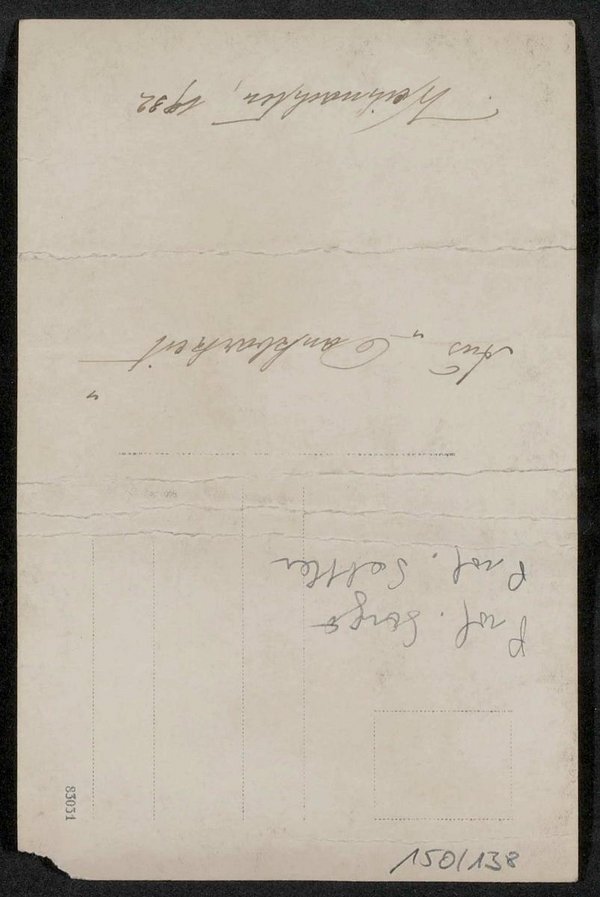 Prof. Sorgo
Prof. Sattler
Aus „Dankbarkeit“
Weihnachten, 1932
83031
150/138